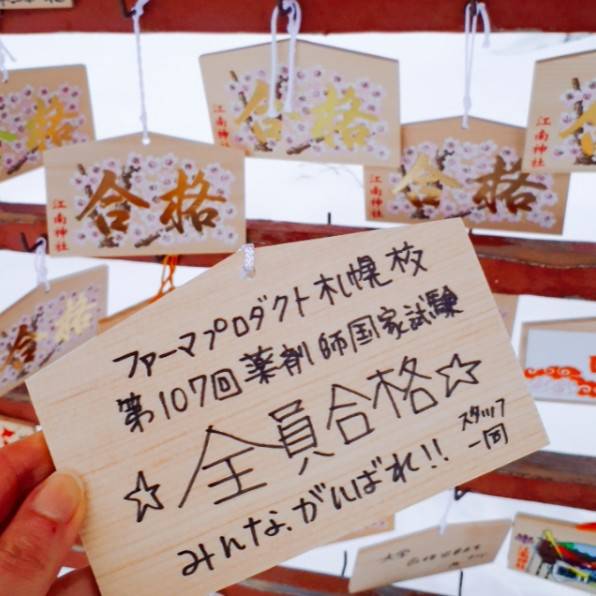 合格
江南神社
合格
江南神社
合格
江南神社
合格
江南神社
合格
合格
ファーマプロダクト札幌校
第107回薬剤師国家試験
☆全員合格☆
みんな、がんばれ!!
スタッフ
一同